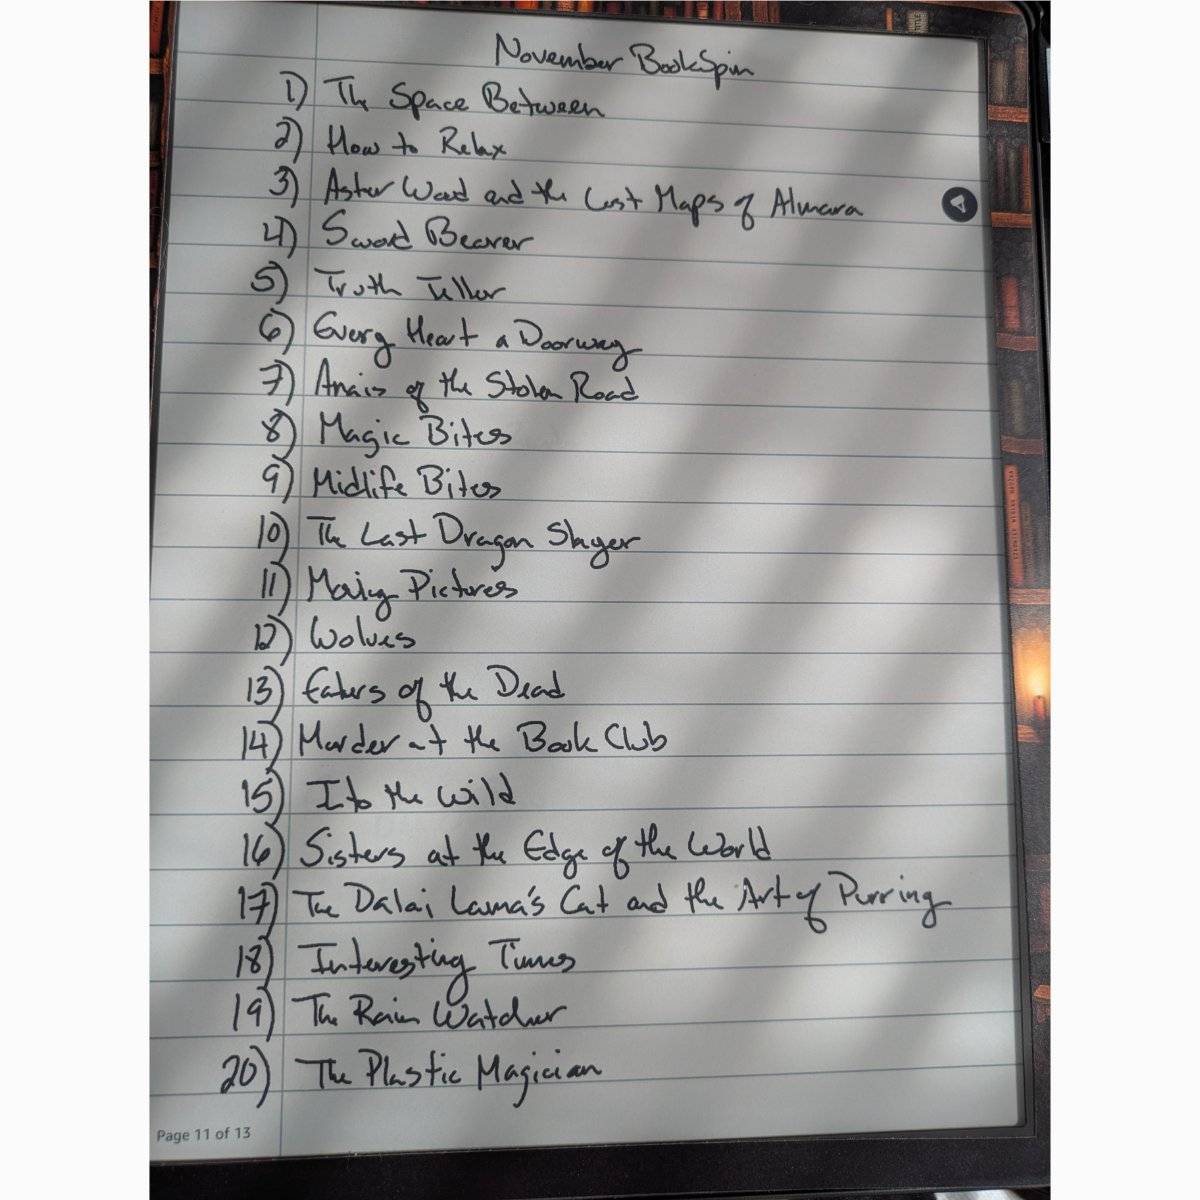 November BookSpin
1) The Space Between
2) How to Relax
3) Aster Wood and the Lost Maps of Almara
4) Sword Bearer
5) Truth Teller
6) Every Heart a Doorway
7) Anais of the Stolen Road
8) Magic Bites
9) Midlife Bites
10) The Last Dragon Slayer
11) Moving Pictures
12) Wolves
13) Eaters of the Dead
14) Murder at the Book Club
15) Into the Wild
16) Sisters at the Edge of the World
17) The Dalai Lama's Cat and the Art of Purring
18) Interesting Times
19) The Rain Watcher
20) The Plastic Magician
Page 11 of 13